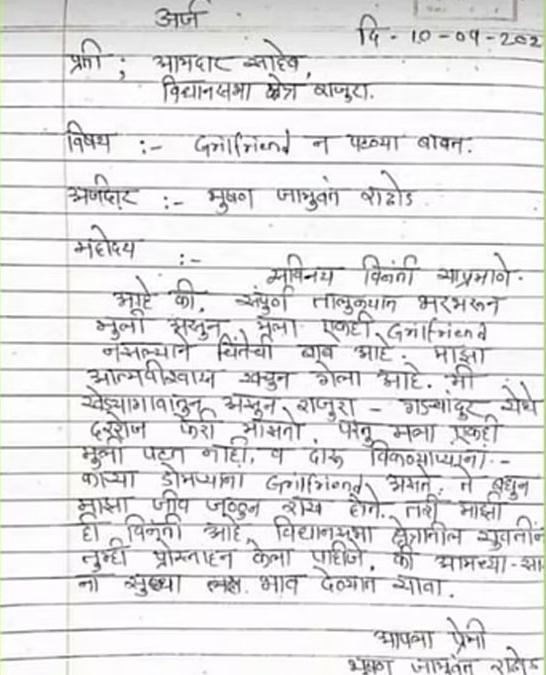 अर्ज
दि - 10-09-202
प्रती ; आमदार साहेब,
विधानसभा क्षेत्र राजुरा.
विषय :- Grilfriend न पटल्या बाबत.
अर्जदार :- भुषण जामुवंत राठोड
महोदय :-
सविनय विनंती याप्रमाणे.
आहे की, संपुर्ण तालुक्यात भरभरून
मुली असुन, मला एकही Grilfriend
नसल्याने चिंतेची बाब आहे. माझा
आत्मविश्वास खचुन गेला आहे. मी
खेड्यागावातुन असुन राजुरा - गडचांदुर येथे
दररोज फेरी मारतो, परंतु मला एकही
मुली पटत नाही, व दारू विकणाऱ्यांना -
काऱ्या डोमऱ्यांना Grilfriend असते. ते बघुन
माझा जीव जळुन राख होतो. तरी माझी
ही विनंती आहे, विधानसभा क्षेत्रातील युवतींन
तुम्ही प्रोत्साहन केला पाहीजे, की आमच्या-सा
ना सुध्दा भाव देण्यात यावा.
आपला प्रेमी
भुषण जामुवंत राठोड